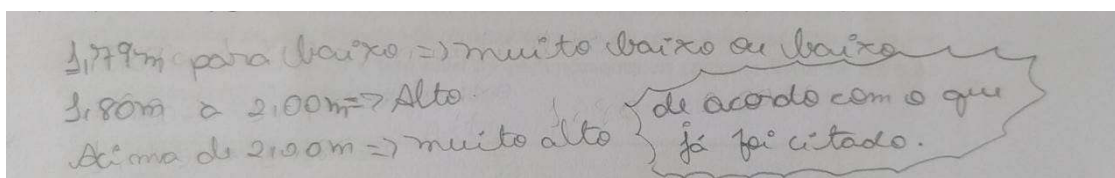 1,79m para baixo => muito baixo ou baixo
1,80m a 2,00m => Alto
Acima de 2,00m => muito alto
de acordo com o que
já foi citado.